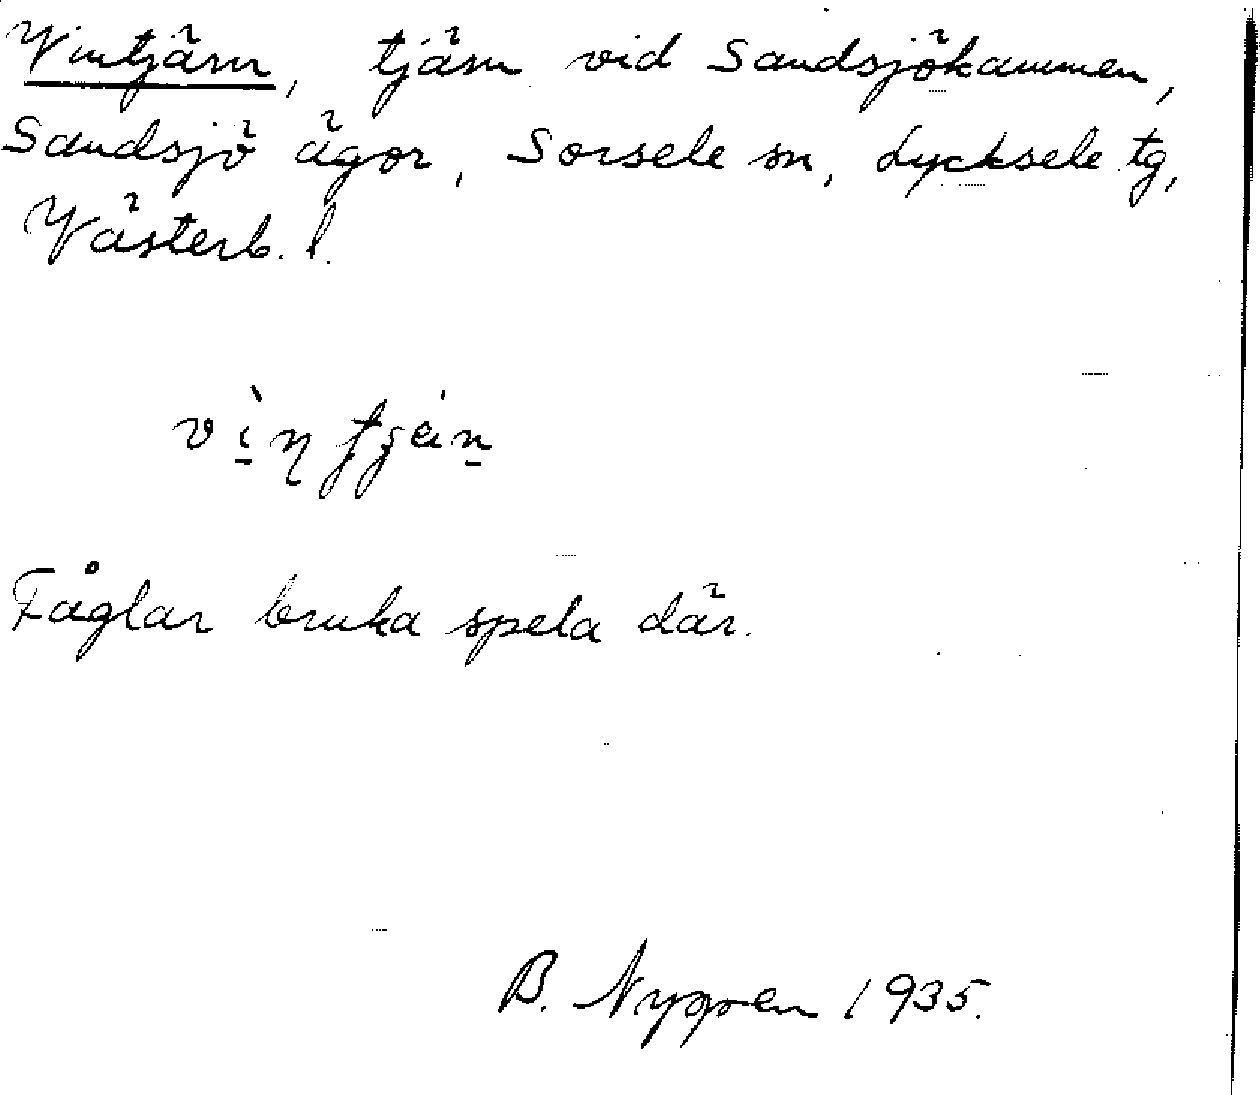 Vintjärn, tjärn vid Sandsjökammen,
Sandsjö ägor, Sorsele sn, Lycksele tg,
Västerb. l.
Fåglar bruka spela där.
B. Nygren 1935.